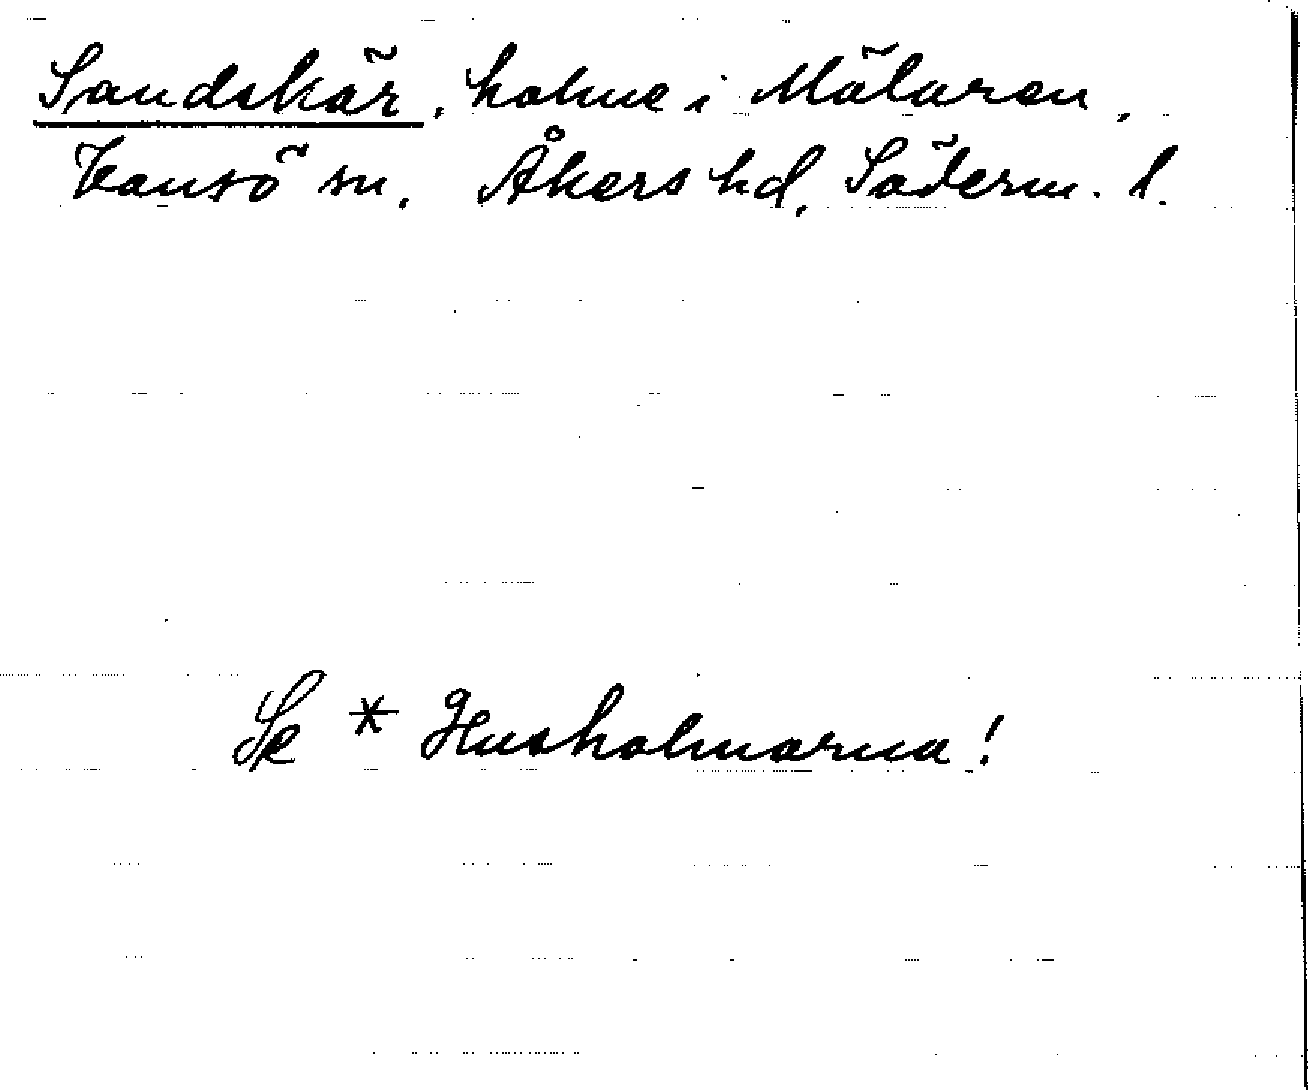 Sandskär, holme i Mälaren,
Vansö sn, Åkers hd, Söderm. l.
Se * Husholmarna!